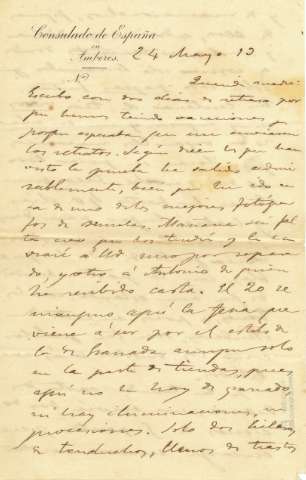 Consulado de España
en
Amberes.
Nº
24 Mayo 13
Querida madre:
Escribo con dos días de retraso por
que hemos tenido vacaciones y
porque esperaba que me enviaran
los retratos. Según dicen los que han
visto la prueba he salido admi
rablemente, bien que he ido en
ca de uno de los mejores fotógra
fos de Bruselas. Mañana sin fal
ta creo que los tendré y le en
viaré á Ud uno por separa
do y otro á Antonio de quien
he recibido carta. El 20 se
inauguró aquí la feria que
viene á ser por el estilo de
la de Granada aunque solo
en la parte de tiendas, pues
aquí no hay de ganado
ni hay iluminaciones, ni
procesiones. Solo dos hileras
de tenduchos, llenos de trastos